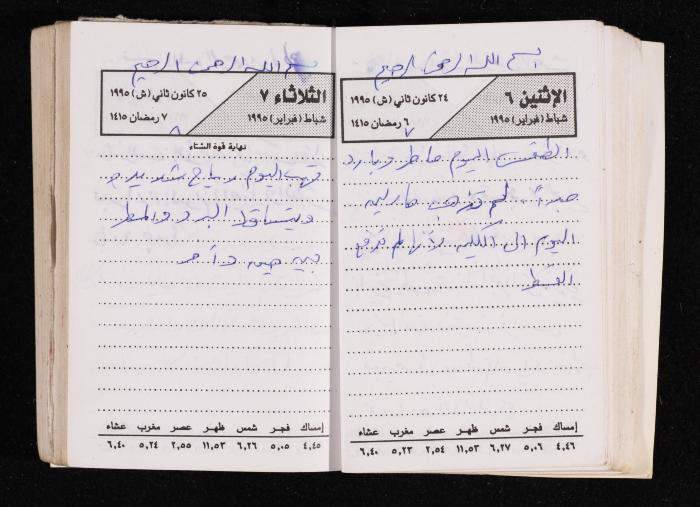 بسم الله الرحمن الرحيم
الإثنين ٦
٢٤ كانون ثاني (ش) ١٩٩٥
شباط (فبراير) ١٩٩٥
٦ رمضان ١٤١٥
٧
الطقس اليوم ماطر وبارد
جداً. لم تذهب مارلين
اليوم الى الكلية لأنها لم تدفع
القسط
إمساك فجر شمس ظهر عصر مغرب عشاء
٤,٤٦ ٥,٠٦ ٦,٢٧ ١١,٥٣ ٢,٥٤ ٥,٢٣ ٦,٤٠
بسم الله الرحمن الرحيم
الثلاثاء ٧
٢٥ كانون ثاني (ش) ١٩٩٥
شباط (فبراير) ١٩٩٥
٧ رمضان ١٤١٥
٨
نهاية قوة الشتاء
تهب اليوم رياح شديدة
ويتساقط البرد والمطر
بين حين وآخر
إمساك فجر شمس ظهر عصر مغرب عشاء
٤,٤٥ ٥,٠٥ ٦,٢٦ ١١,٥٣ ٢,٥٥ ٥,٢٤ ٦,٤٠